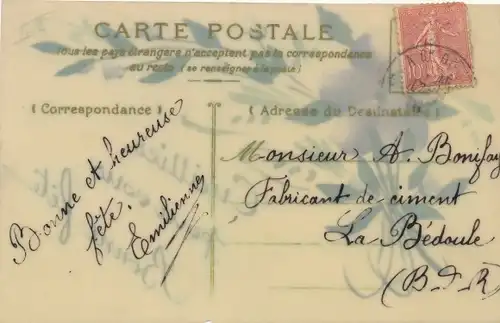 CARTE POSTALE
Tous les pays étrangers n'acceptent pas la correspondance
au recto (se renseigner à la poste)
( Correspondance )
( Adresse du Destinataire )
Bonne et heureuse
fête.
Emilienne
Monsieur A. Bonifay
Fabricant de ciment
La Bédoule
(B-d-R)